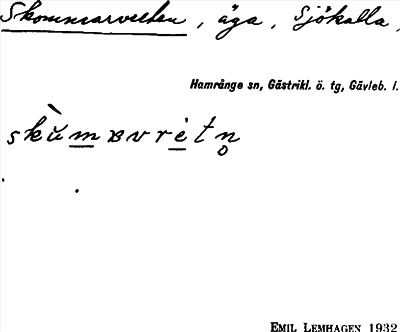 Skommarveten, äga, Sjökalla,
Hamrånge sn, Gästrikl. ö. tg, Gävleb. l.
skùmarvrètn̥
EMIL LEMHAGEN 1932